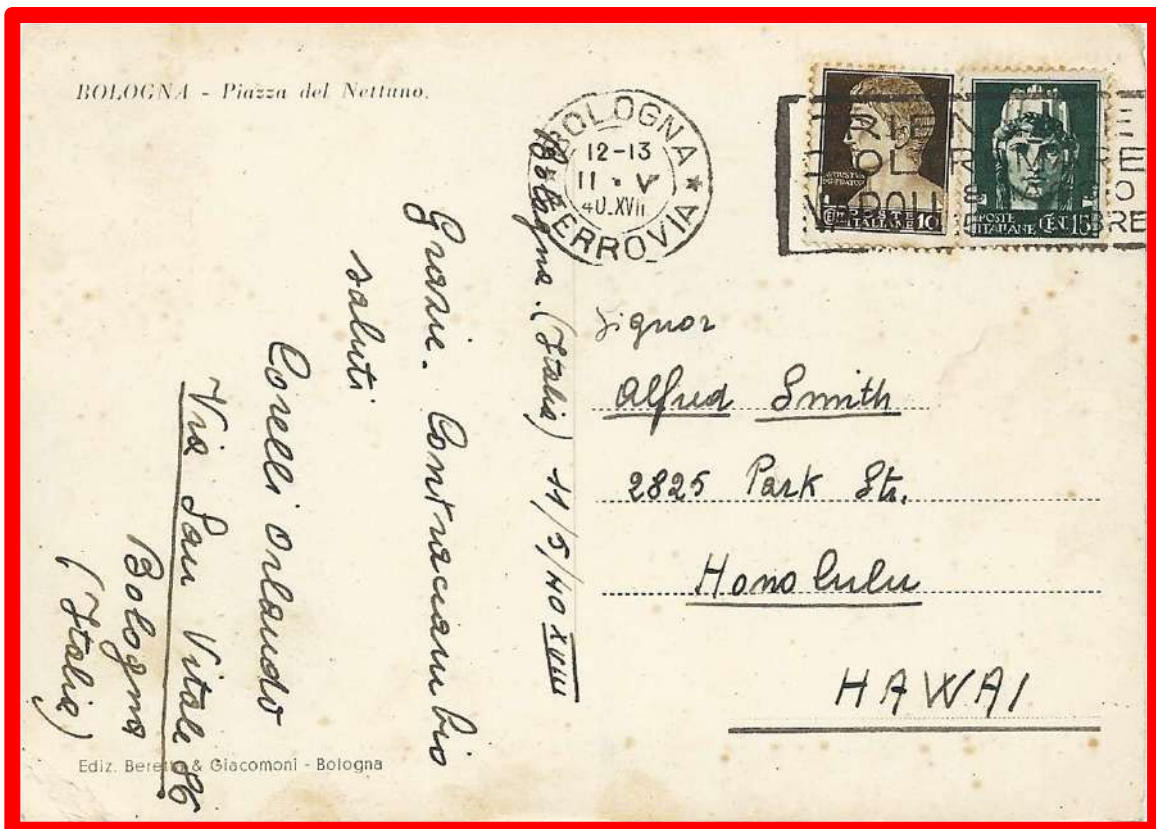 BOLOGNA - Piazza del Nettuno.
BOLOGNA
12-13
11 · V
40.XVII
FERROVIA
NAPOLI
AUGUSTVS
POSTE
ITALIANE
10
POSTE
ITALIANE
CENT.15
Bologna. (Italia) 11/5/40 XVIII
Grazie. Contraccambio
saluti
Corelli Orlando
Via San Vitale 86
Bologna
(Italia)
Signor
Alfred Smith
2825 Park Str.
Honolulu
HAWAI
Ediz. Beretta & Giacomoni - Bologna